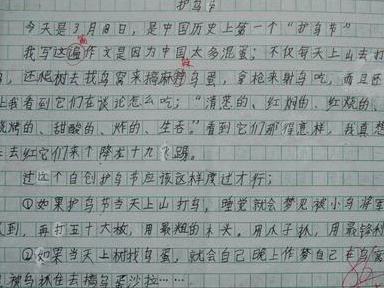 护鸟节
今天是3月18日,是中国历史上第一个“护鸟节”
我写这遍作文是因为中国太多混蛋;不仅每天上山去打
鸟,还爬树去找鸟窝来搞麻鸟蛋,拿枪来射鸟吃,而且还
上我看到它们在谈论怎么吃;“清蒸的、红焖的、红烧的、
烧烤的、甜酸的、炸的、生吞。”看到它们那得意样,我真想
去红它们来个降龙十九飞踢。
过这个自创护鸟节应该这样度过才行;
①如果护鸟节当天上山打鸟,睡觉就会梦见被小鸟将军
到,再打五十大板,用最粗的木头,用人子
②如果当天上树找鸟蛋,就会自己晚上作梦自己在鸟窝
被鸟抓住去搞鸟蛋沙拉……